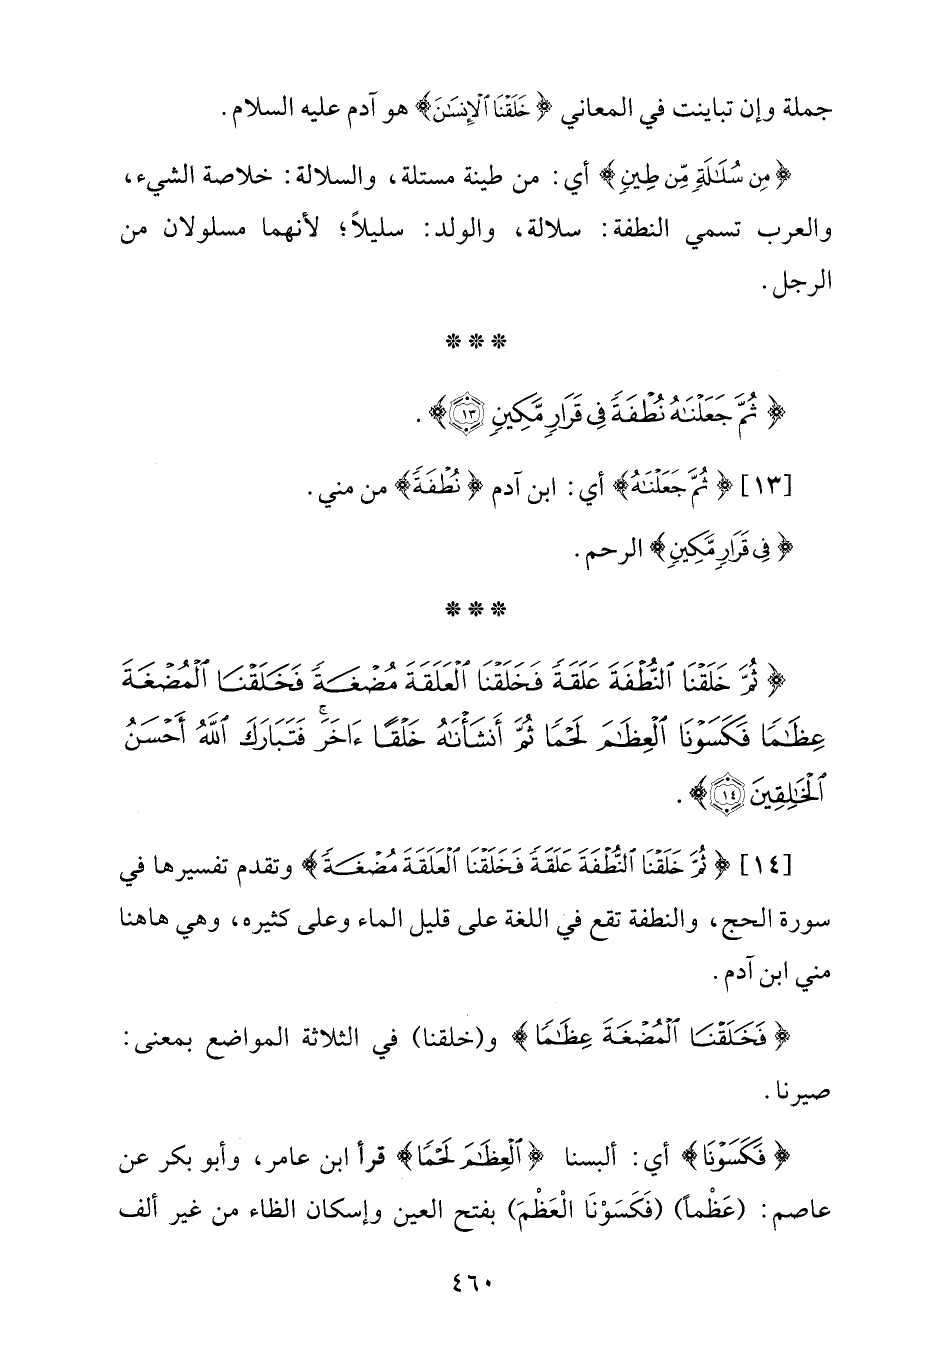 جملة وإن تباينت في المعاني ﴿خَلَقْنَا ٱلْإِنسَٰنَ﴾ هو آدم عليه السلام.
﴿مِن سُلَٰلَةٖ مِّن طِينٖ﴾ أي: من طينة مستلة، والسلالة: خلاصة الشيء،
والعرب تسمي النطفة: سلالة، والولد: سليلاً؛ لأنهما مسلولان من
الرجل.
* * *
﴿ثُمَّ جَعَلْنَٰهُ نُطْفَةٗ فِي قَرَارٖ مَّكِينٖ ١٣﴾.
[١٣] ﴿ثُمَّ جَعَلْنَٰهُ﴾ أي: ابن آدم ﴿نُطْفَةٗ﴾ من مني.
﴿فِي قَرَارٖ مَّكِينٖ﴾ الرحم.
* * *
﴿ثُمَّ خَلَقْنَا ٱلنُّطْفَةَ عَلَقَةٗ فَخَلَقْنَا ٱلْعَلَقَةَ مُضْغَةٗ فَخَلَقْنَا ٱلْمُضْغَةَ
عِظَٰمٗا فَكَسَوْنَا ٱلْعِظَٰمَ لَحْمٗا ثُمَّ أَنشَأْنَٰهُ خَلْقًا ءَاخَرَۚ فَتَبَارَكَ ٱللَّهُ أَحْسَنُ
ٱلْخَٰلِقِينَ ١٤﴾.
[١٤] ﴿ثُمَّ خَلَقْنَا ٱلنُّطْفَةَ عَلَقَةٗ فَخَلَقْنَا ٱلْعَلَقَةَ مُضْغَةٗ﴾ وتقدم تفسيرها في
سورة الحج، والنطفة تقع في اللغة على قليل الماء وعلى كثيره، وهي هاهنا
مني ابن آدم.
﴿فَخَلَقْنَا ٱلْمُضْغَةَ عِظَٰمٗا﴾ و(خلقنا) في الثلاثة المواضع بمعنى:
صيرنا.
﴿فَكَسَوْنَا﴾ أي: ألبسنا ﴿ٱلْعِظَٰمَ لَحْمٗا﴾ قرأ ابن عامر، وأبو بكر عن
عاصم: (عَظْماً) (فَكَسَوْنَا الْعَظْمَ) بفتح العين وإسكان الظاء من غير ألف
٤٦٠